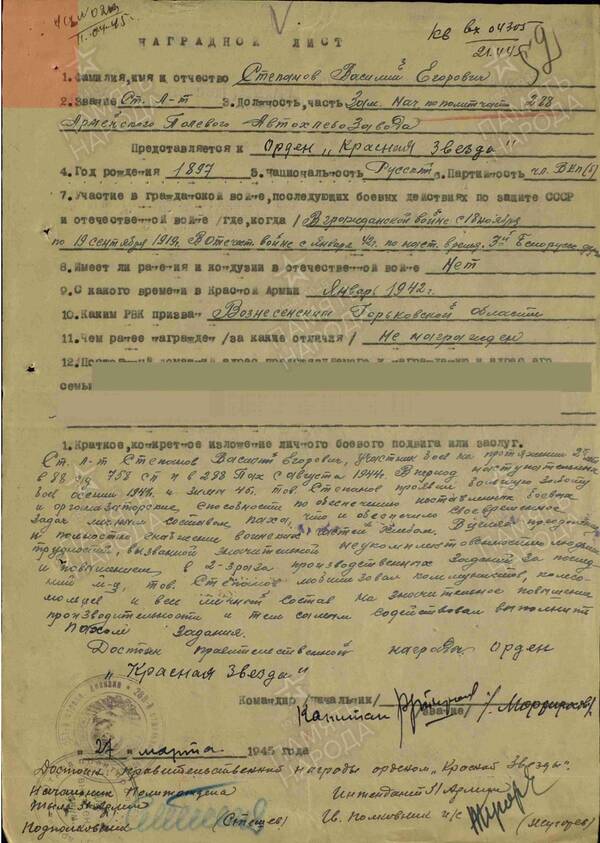 НАГРАДНОЙ ЛИСТ
кв вх 04305
21.4.45
1. Фамилия, имя и отчество Степанов Василий Егорович
2. Звание Ст. Л-т 3. Должность, часть Зам. Нач по политчасти 288
Армейского Полевого Автохлебозавода
Представляется к Орден „Красная Звезда"
4. Год рождения 1897 5. Национальность Русский 6. Партийность чл. ВКП(б)
7. Участие в гражданской войне, последующих боевых действиях по защите СССР
и отечественной войне /где, когда/ В гражданской войне с 18 ноября
по 19 сентября 1919г. В Отечеств. войне с января 42г. по наст. время. 3й Белорусс.
8. Имеет ли ранения и контузии в отечественной войне Нет
9. С какого времени в Красной Армии Январь 1942г.
10. Каким РВК призван Вознесенский Горьковской области
11. Чем ранее награжден /за какие отличия/ Не награжден
12. Постоянный домашний адрес представляемого к награждению и адрес его
семьи
1. Краткое, конкретное изложение личного боевого подвига или заслуг.
Ст. Л-т Степанов Василий Егорович, участник боев на протяжении
в 88 сд 758 сп и в 288 ПАХ с августа 1944г. В период наступательных
боев осени 1944г. и зимы 45г. тов. Степанов проявил большую заботу
и организаторские способности по обеспечению поставленных боевых
задач личным составом ПАХа, что и обеспечило своевременное
и полностью снабжение воинских частей хлебом. В целях преодоления
трудностей, вызванной значительной неукомплектованностью людьми
и повышением в 2-3 раза производственных заданий за послед-
ний м-ц, тов. Степанов мобилизовал коммунистов, комсо-
мольцев и весь личный состав на значительное повышение
производительности и тем самым содействовал выполнить
ПАХом задания.
Достоин правительственной награды орден
„Красная Звезда"
Командир /начальник/
Капитан /звание/ /Мардирахов/
"27" марта 1945 года
Достоин правительственной награды орденом „Красной Звезды".
Начальник Политотдела Интендант 31 Армии
Тыла 31 Армии Гв. Полковник и/с
Подполковник (Стецев)
ПАМЯТЬ НАРОДА